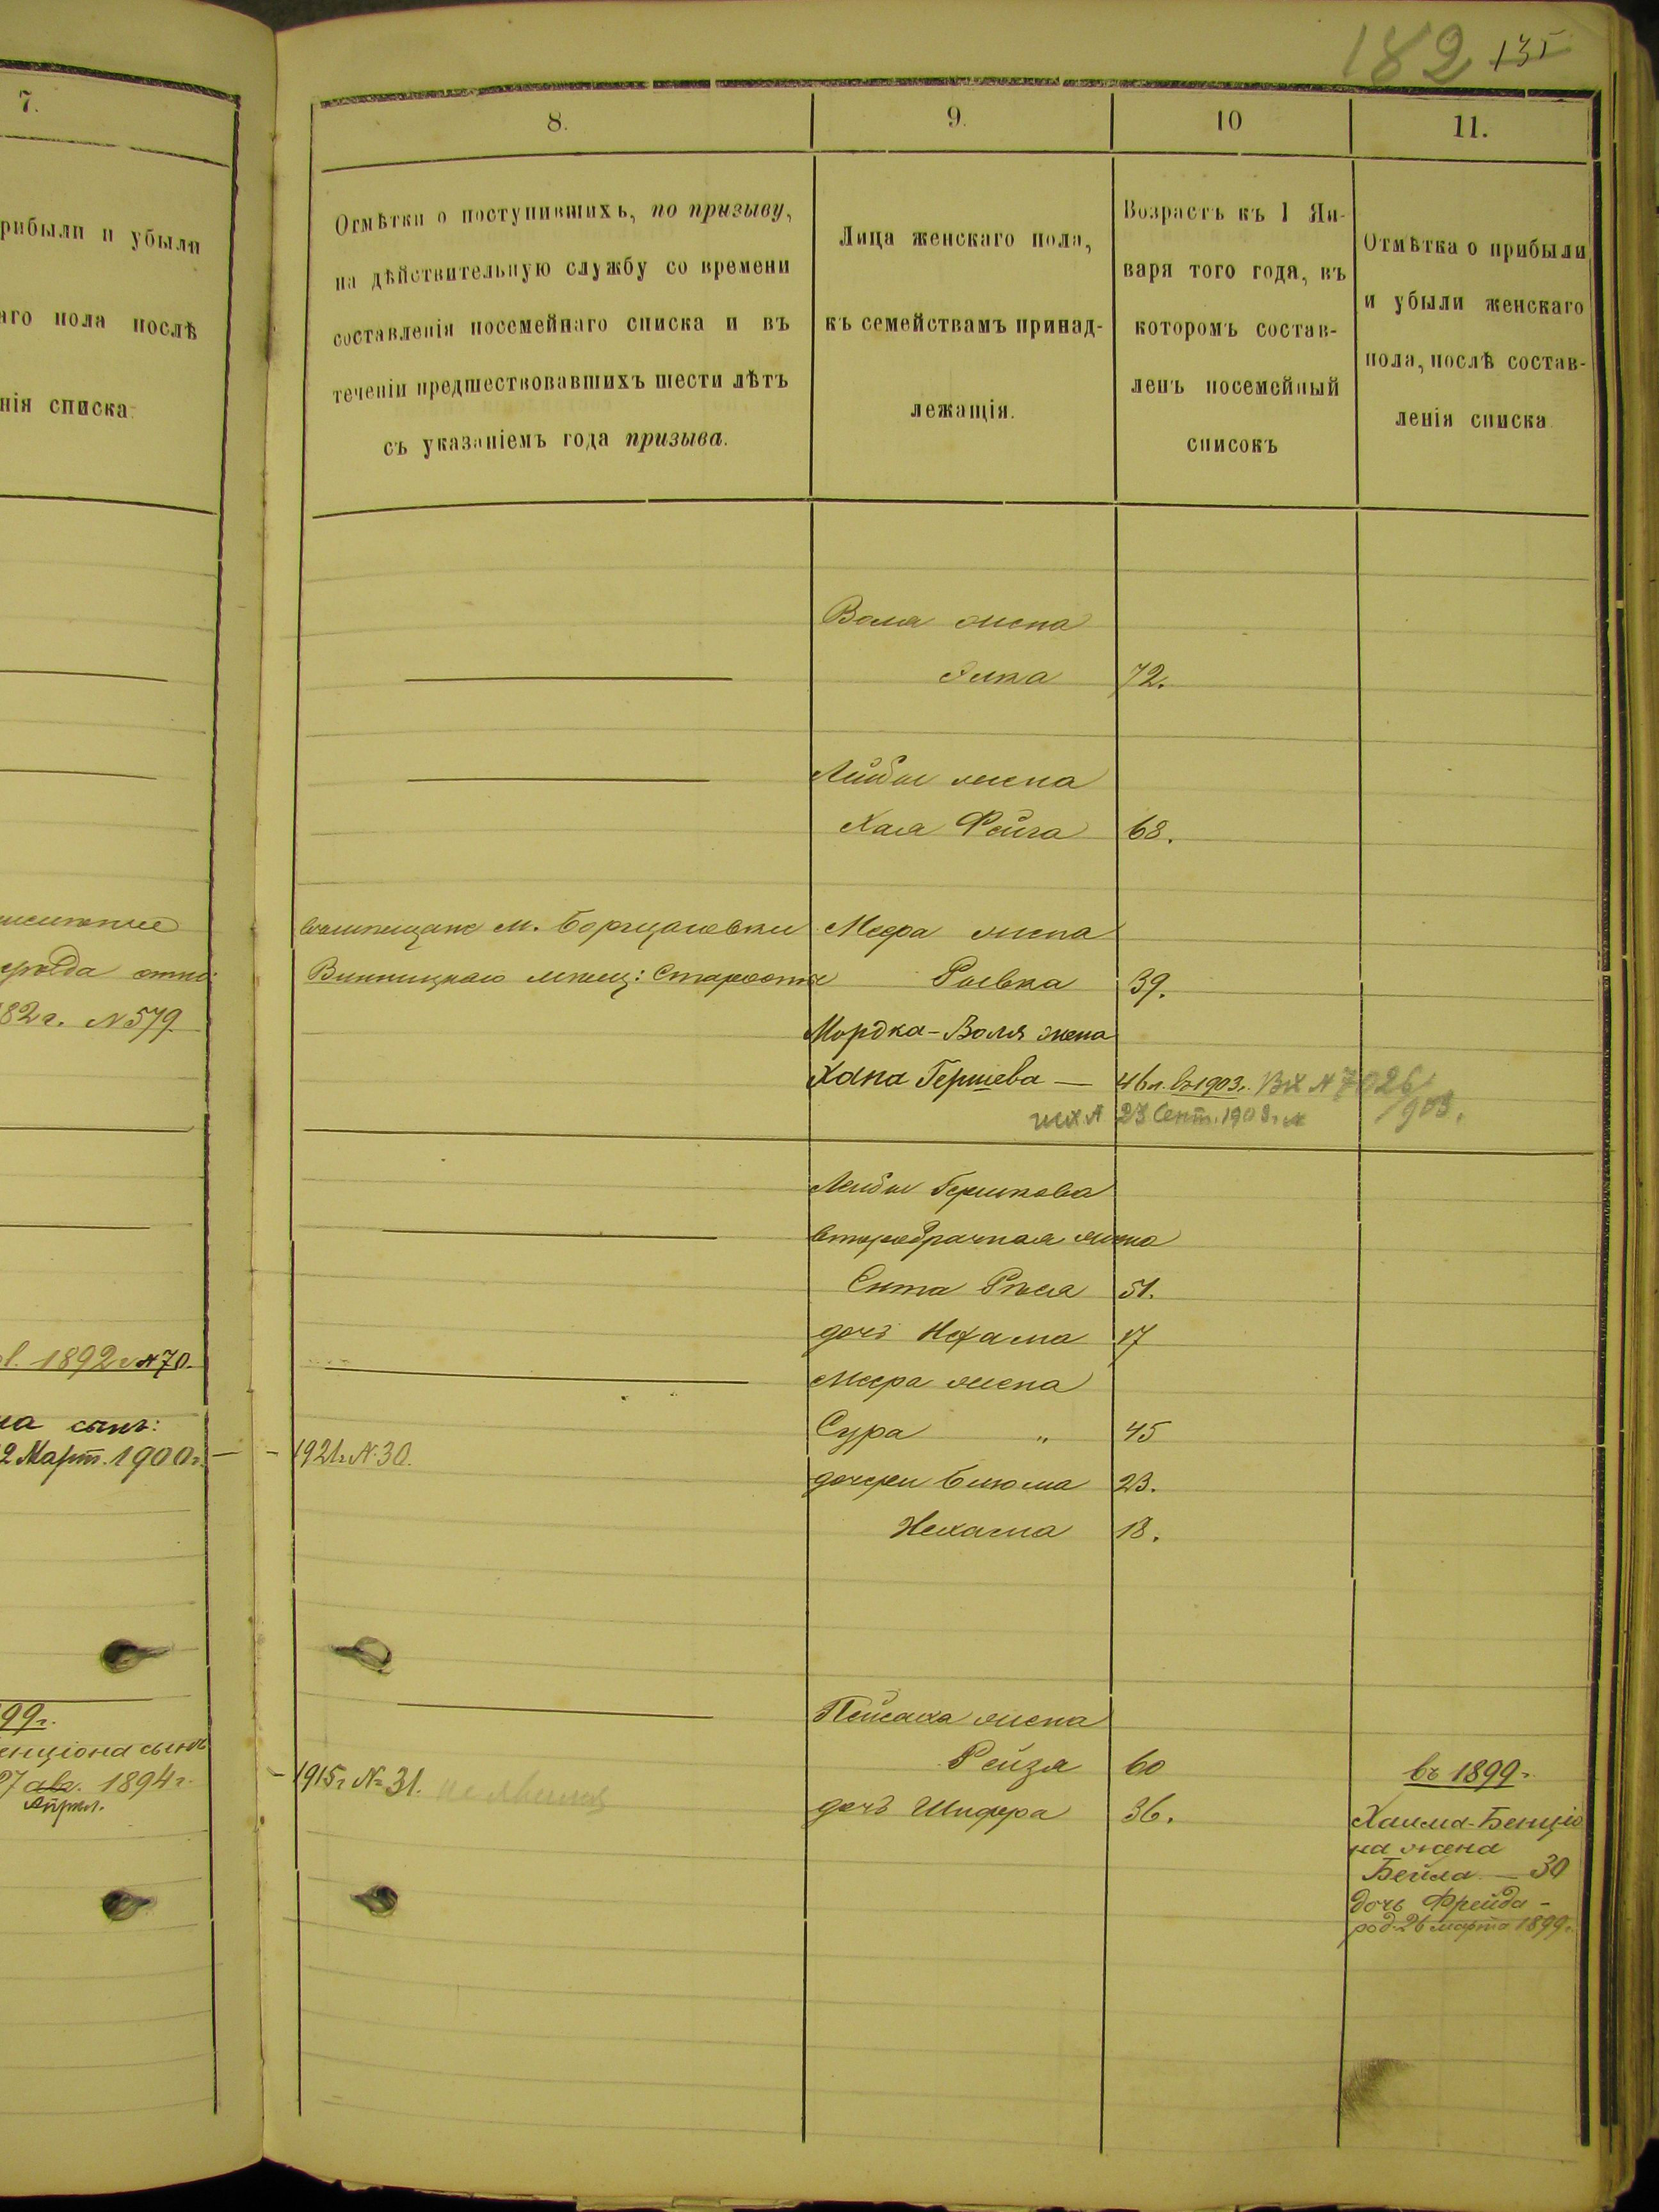 182 135
7.
рибыли и убыли
аго пола послѣ
нія списка
82 г. N 579
1892 г N 70.
на сынъ:
2 Март. 1900 г. —
99 г.
енціона сынъ
27 авг. 1894 г.
апрѣл.
8.
Отмѣтки о поступившихъ, по призыву,
на дѣйствительную службу со времени
составленія посемейнаго списка и въ
теченіи предшествовавшихъ шести лѣтъ
съ указаніемъ года призыва.
9.
Лица женскаго пола,
къ семействамъ принад-
лежащія.
10
Возрастъ къ 1 Ян-
варя того года, въ
которомъ состав-
ленъ посемейный
списокъ
11.
Отмѣтка о прибыли
и убыли женскаго
пола, послѣ состав-
ленія списка
Вола жена
Элка 72.
Лейбы жена
Хая Фейга 68.
м. Борщаговки Меера жена
Винницкаго мѣщ: Старосты Ривка 39.
Мордка-Воля жена
Хана Гершева — 46 л. въ 1903 г. Вх N 7026/903.
23 Сент. 1903 г.
Лейбы Гершкова
второбрачная жена
Ента Рися 51.
дочь Нехама 17
Меера жена
Сура " 45
- 1921 г. N. 30.
дочери Блюма 23.
Нехама 18.
Пейсаха жена
Рейзя 60
- 1915 г. N= 31. не явился
дочь Шифра 36.
въ 1899 г.
Хаима-Бенціо
на жена
Бейла — 30
дочь Фрейда -
род. 26 марта 1899 г.